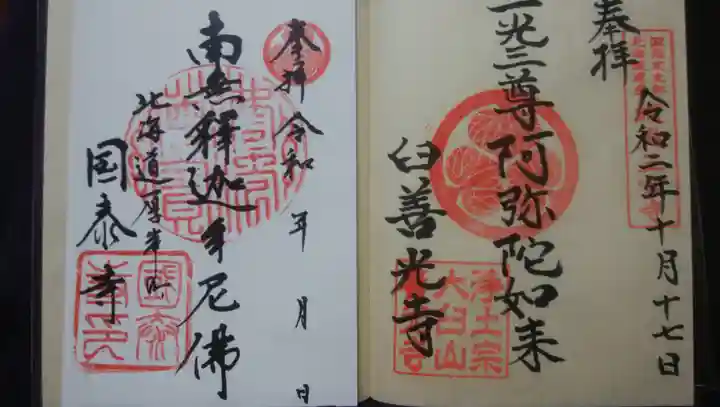 奉拝
令和二年十月十七日
一光三尊阿弥陀如来
臼善光寺
浄土宗
大臼山
奉拝 令和 年 月 日
南無釋迦牟尼佛
北海道厚岸町
国泰寺
國泰